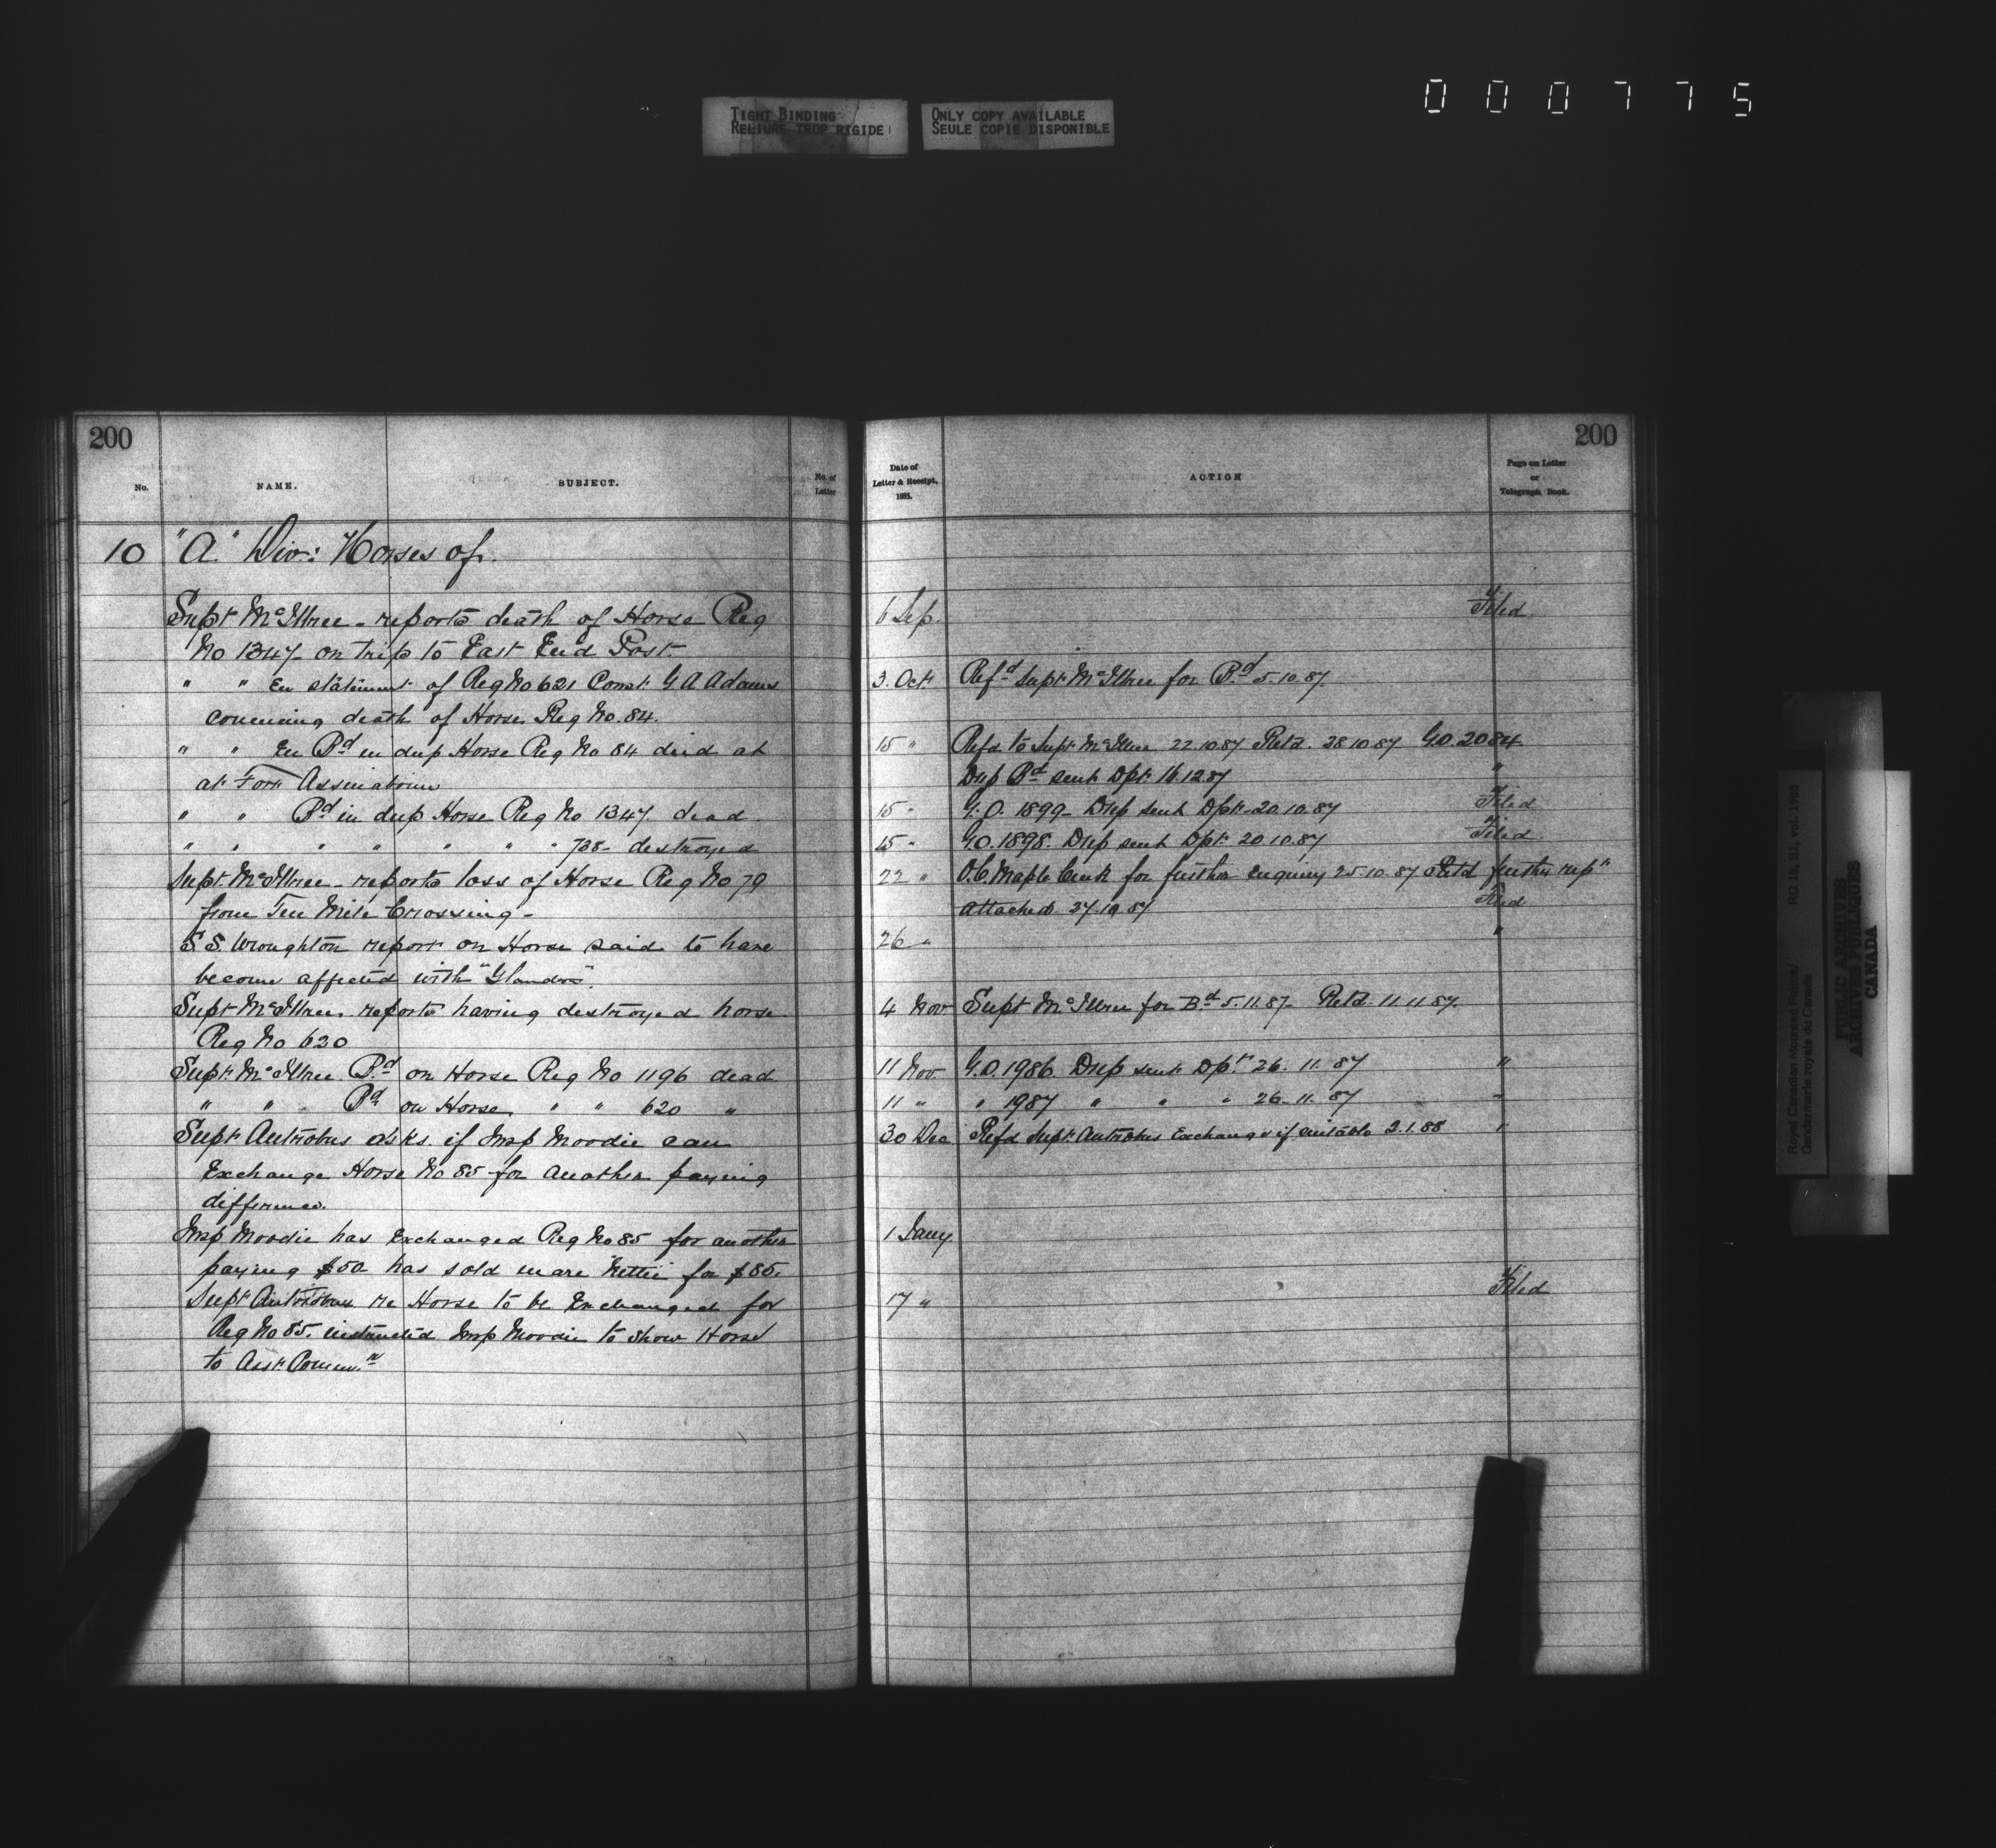 TIGHT BINDING
RELIURE TROP RIGIDE
ONLY COPY AVAILABLE
SEULE COPIE DISPONIBLE
000775
200
No.
NAME.
SUBJECT.
No. of
Letter
10 "A" Div: Horses of.
Supt McIllree - reports death of Horse Reg
No 1347 - on trip to East End Post.
" " En statement of Reg No 621 Const G A Adams
concerning death of Horse Reg No. 84.
" " En Bd in dup Horse Reg No 84 died at
at Fort Assinaboine
" " Bd in dup Horse Reg No 1347 dead
" " " " " " " 738 - destroyed
Supt. McIllree - reports loss of Horse Reg No 79
from Ten Mile Crossing -
S.S. Wroughton report on Horse said to have
become affected with "Glanders".
Supt McIllree. reports having destroyed horse
Reg No 620
Supt. McIllree Bd on Horse Reg No 1196 dead
" " Bd on Horse " " 620 "
Supt Antrobus asks if Insp Moodie can
Exchange Horse No 85 for another paying
difference.
Insp Moodie has Exchanged Reg No 85 for another
paying $50 has sold mare Nettie for $85.
Supt Antrobus re Horse to be Exchanged for
Reg No 85. instructed Insp Moodie to show Horse
to Asst. Commr.
200
Date of
Letter & Receipt,
1885.
ACTION
Page on Letter
or
Telegraph Book.
6 Sep. Filed
3. Oct Refd Supt McIllree for Bd 5.10.87.
15 " Refd to Supt McIllree 22.10.87 Retd. 28.10.87 G.O. 2084
Dup Bd sent Dpt. 16.12.87 "
15 " G.O. 1899 - Dup sent Dpt - 20.10.87 Filed
15 " G.O. 1898. Dup sent Dpt. 20.10.87 Filed
22 " O.C. Maple Creek for further Enquiry 25.10.87 Retd further rept
Attached 27.10.87 Filed
26 " "
4 Nov Supt McIllree for Bd 5.11.87 - Retd. 11.11.87.
11 Nov. G.O. 1986. Dup sent Dpt. 26.11.87 "
11 " " 1987 " " " 26.11.87 "
30 Dec Refd Supt Antrobus Exchange if suitable 2.1.88 "
1 Jany
17 " Filed
Royal Canadian Mounted Police/
Gendarmerie royale du Canada
RG 18, B1, vol. 1968
PUBLIC ARCHIVES
ARCHIVES PUBLIQUES
CANADA